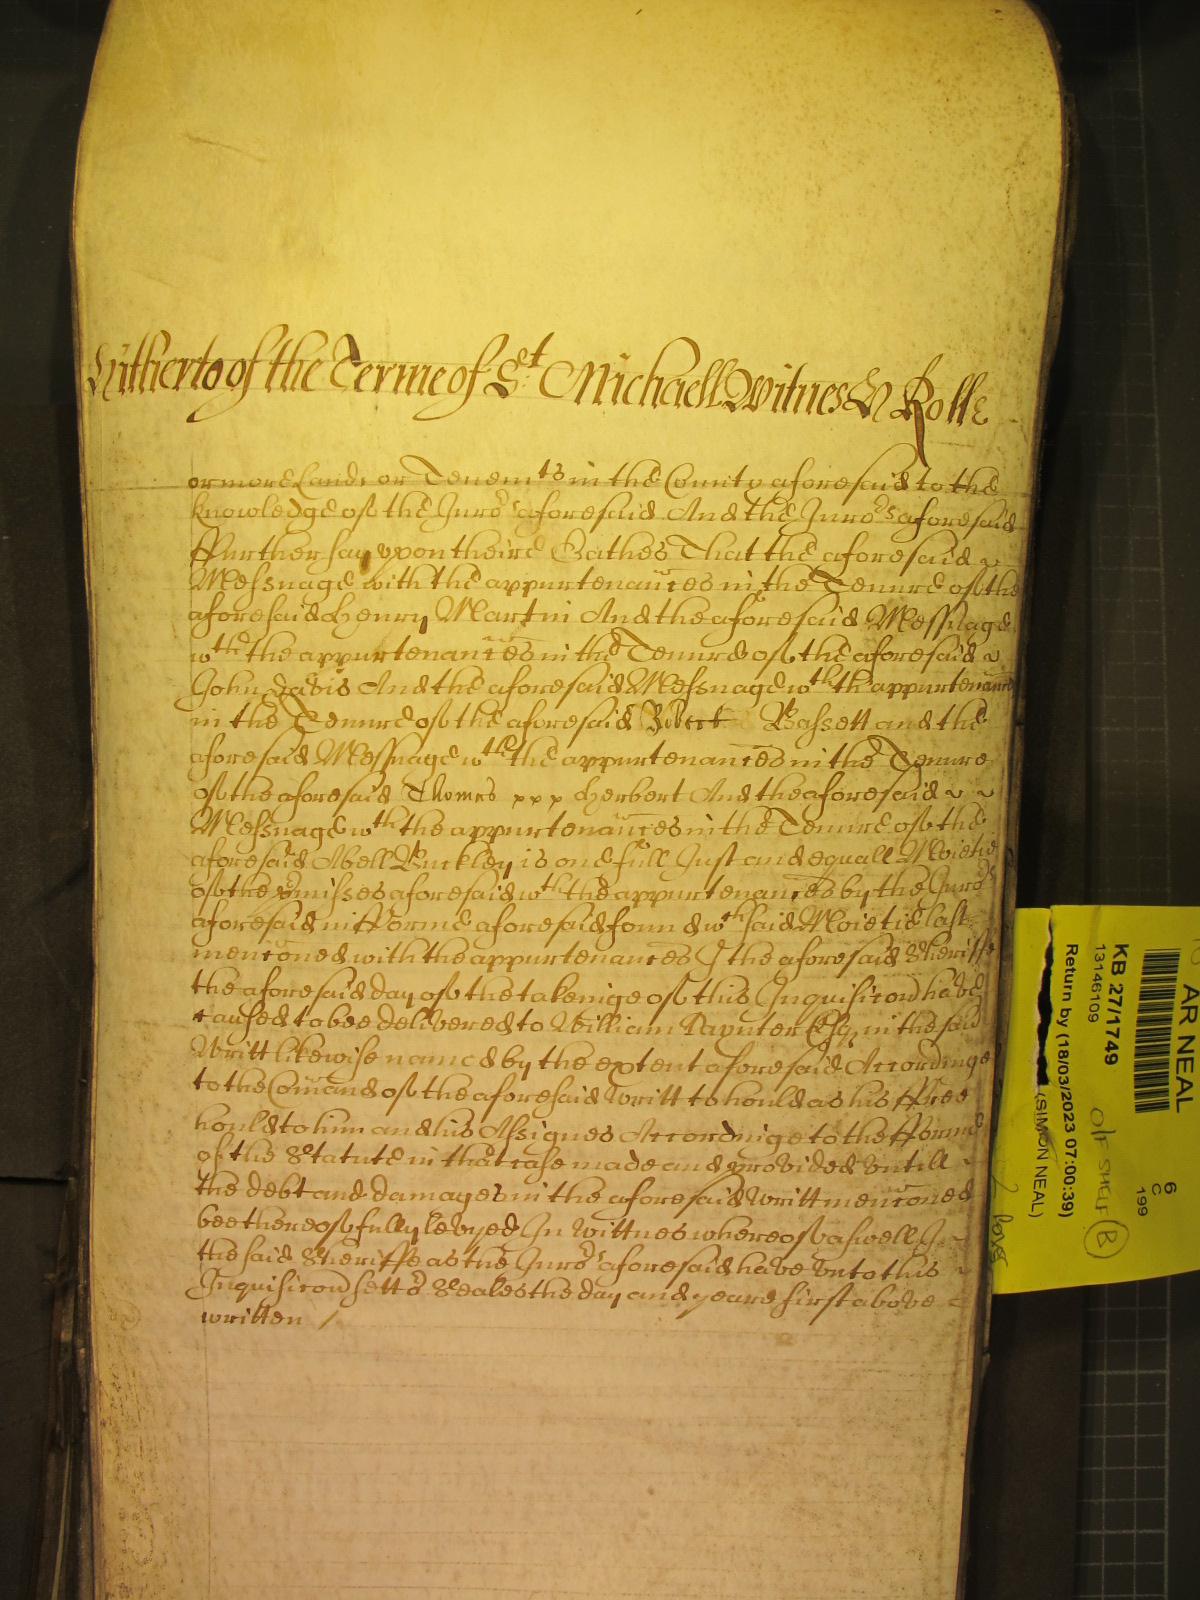 Hitherto of the Terme of St Michaell Witnes H Rolle
or more Lands or Tenemts in the County aforesaid to the
knowledge of the Juror's aforesaid And the Jurors aforesaid
ffurther say vpon theire Oathes That the aforesaid
Messuage with the appurtenances in the Tenure of the
aforesaid Henry Martin And the aforesaid Messuage
wth the appurtenances in the Tenure of the aforesaid
John Davis And the aforesaid Messuage wth th appurtenances
in the Tenure of the aforesaid Robert Bassett and the
aforesaid Messuage wth the appurtenances in the Tenure
of the aforesaid Thomas x x x Herbert And the aforesaid
Messuage wth the appurtenances in the Tenure of the
aforesaid Abell Buckley is one full Just and equall Moietie
of the pmisses aforesaid wth the appurtenances by the Jurors
aforesaid in fforme aforesaid found wch said Moietie last
mencioned with the appurtenances I the aforesaid Sheriffe
the aforesaid day of the takeinge of this Inquisicon have
caused to bee delivered to William Paynter Esqr in the said
Writt likewise named by the extent aforesaid Accordinge
to the Comand of the aforesaid Writt to hould as his ffree
hould to him and his Assignes Accordinge to the fforme
of the Statute in that case made and provided vntill
the debt and damages in the aforesaid Writt mencioned
bee thereof fully levyed In Wittnes whereof aswell I
the said Sheriffe as the Jurors aforesaid have vnto this
Inquisicon sett or Seales the day and yeare first above
written /
AR NEAL
KB 27/1749
13146109
Return by (18/03/2023 07:00:39)
(SIMON NEAL)
6
C
199
O/F SHELF B
2 boxes